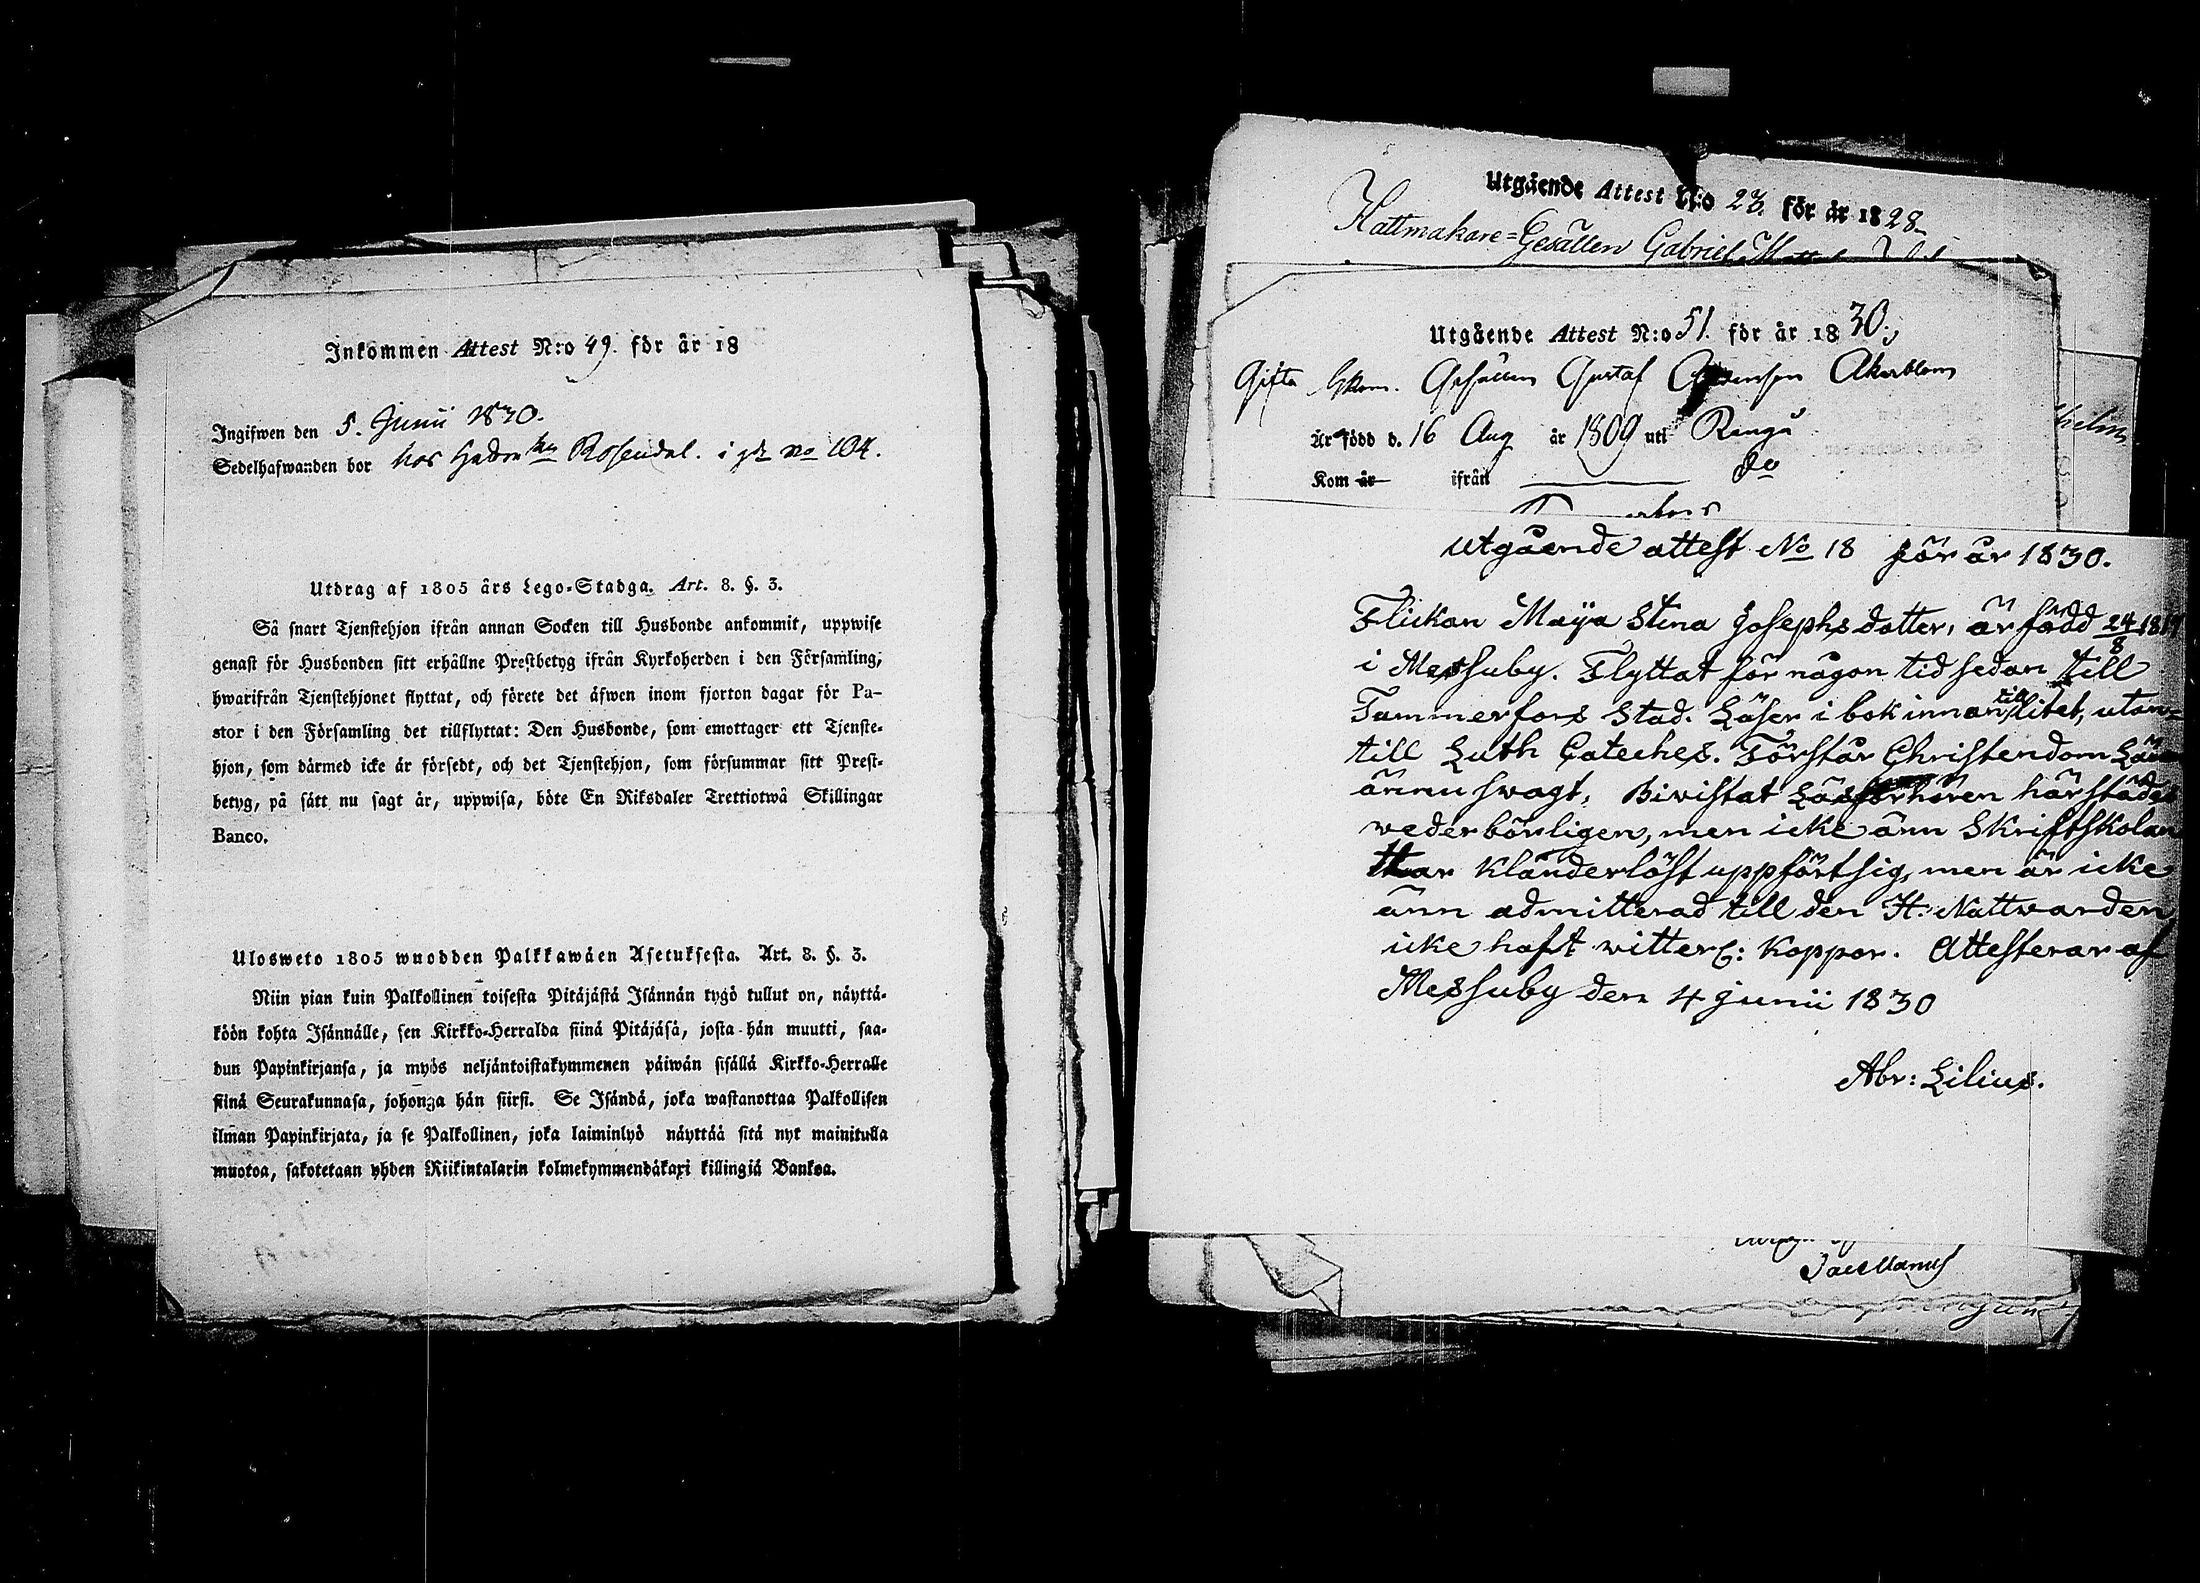 Inkommen Attest N:o 49. för år 18
Ingifwen den 5. Junii 1830.
Sedelhafwanden bor hos Rosendal. i gd No 104.
Utdrag af 1805 års Lego-Stadga. Art. 8. §. 3.
Så snart Tjenstehjon ifrån annan Socken till Husbonde ankommit, uppwise
genast för Husbonden sitt erhållne Prestbetyg ifrån Kyrkoherden i den Församling,
hwarifrån Tjenstehjonet flyttat, och förete det äfwen inom fjorton dagar för Pa-
stor i den Församling det tillflyttat: Den Husbonde, som emottager ett Tjenste-
hjon, som därmed icke är försedt, och det Tjenstehjon, som försummar sitt Prest-
betyg, på sätt nu sagt är, uppwisa, böte En Riksdaler Trettiotwå Skillingar
Banco.
Ulosweto 1805 wuodden Palkkawäen Asetuksesta. Art. 8. §. 3.
Niin pian kuin Palkollinen toisesta Pitäjästä Isännän tygö tullut on, näyttä-
köön kohta Isännälle, sen Kirkko-Herralda siinä Pitäjäsä, josta hän muutti, saa-
dun Papinkirjansa, ja myös neljäntoistakymmenen päiwän sisällä Kirkko-Herralle
siinä Seurakunnasa, johonga hän siirsi. Se Isändä, joka wastanottaa Palkollisen
ilman Papinkirjata, ja se Palkollinen, joka laiminlyö näyttää sitä nyt mainitulla
muotoa, sakotetaan yhden Riikintalarin kolmekymmendäkaxi killingiä Bankoa.
Utgående Attest N:o 23. för år 1828
Hattmakare=Gesällen Gabriel
Utgående Attest N:o 51. för år 1830.
Gifta Gesällen Gustaf Åkerblom
Är född d. 16 Aug år 1809 uti
Kom år ifrån do
utgående attest No 18 för år 1830.
Flickan Maija Stina Josephsdotter, är född 24/8 181
i Messuby. Flyttat för någon tid sedan till
Tammerfors Stad. Läser i bok innan till litet, utan=
till Luth Cateches. Förstår Christendom
ännu swagt, Biwistat Läsförhören härstädes
wederbörligen, men icke änn Skriftskolan
Har klanderlöst uppfört sig, men är icke
änn admitterad till den H. Nattwarden
icke haft witterl: Koppor. Attesterar af
Messuby den 4 Junii 1830
Abr: Lilius.